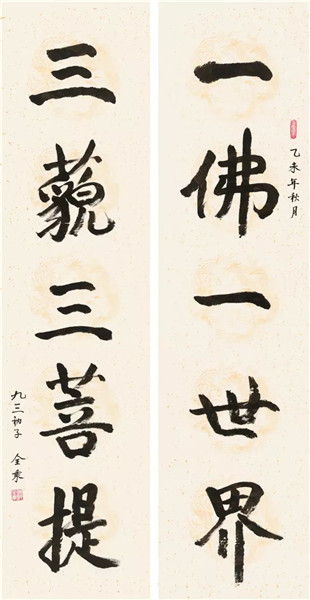 一佛一世界
乙未年秋月
三藐三菩提
九三初子 全乘